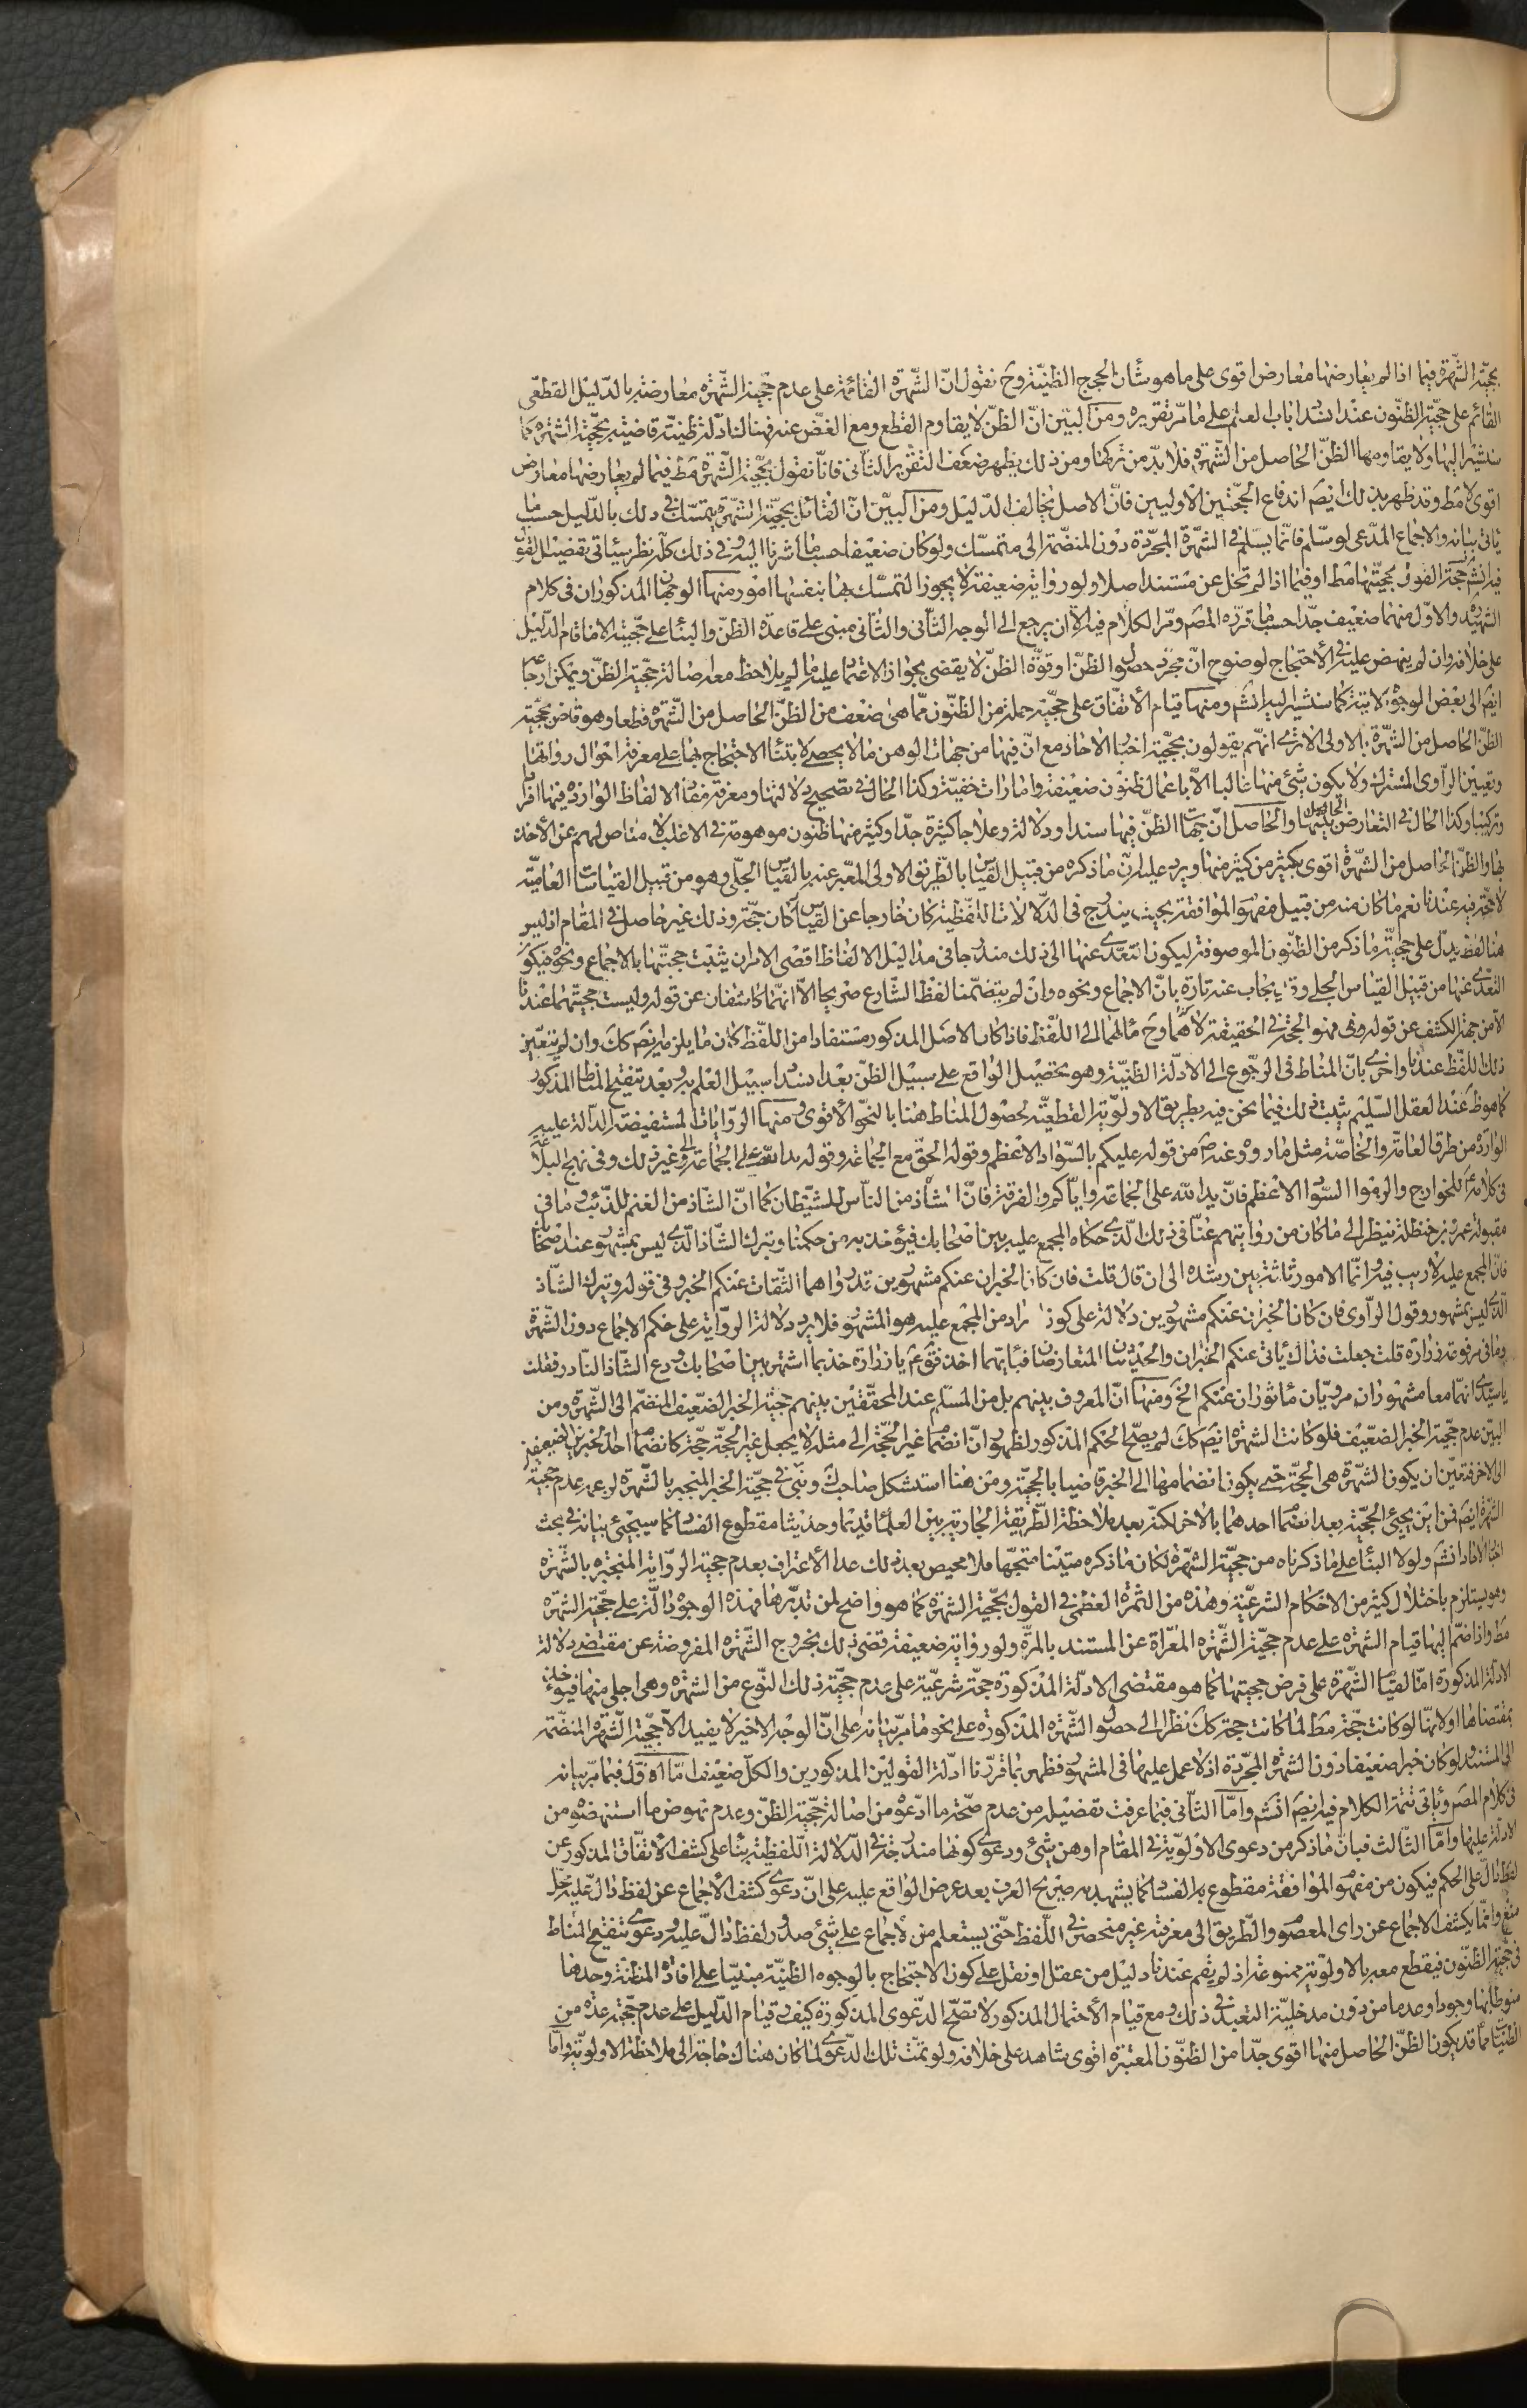 بحجيّة الشّهرة فيما اذا لم يعارضها معارض اقوى على ما هو شأن الحجج الظنيّة وح نقول انّ الشّهرة القائمة على عدم حجيّة الشّهرة معارضة بالدّليل القطعى
القائم على حجيّة الظنّون عند انسداد باب العلم على ما مرّ تقريره ومن البيّن انّ الظنّ لا يقاوم القطع ومع الغضّ عنه فهنا لنا ادلّة ظنيّة قاضية بحجيّة الشّهرة كما
سنشير اليها ولا يقاومها الظنّ الحاصل من الشّهرة فلا بدّ من تركها ومن ذلك يظهر ضعف التقرير الثّانى فانّا نقول بحجيّة الشّهرة مط فيما لم يعارضها معارض
اقوى لا مط وقد ظهر بذلك ايضَ اندفاع الحجّتين الاوليين فانّ الاصل يخالف الدّليل ومن البيّن انّ القائل بحجيّة الشّهرة يتمسّك فى ذلك بالدّليل حسب ما
ياتى بيانه والاجماع المدّعى لو سلّم فانّما يسلّم فى الشّهرة المجرّدة دون المنضمّة الى متمسّك ولو كان ضعيفا حسب ما اشرنا اليه وفى ذلك كلّه نظر سيأتى تفضيل القول
فيه انشَ حجّة القول بحجيّتها مط او فيما اذا لم تخل عن مستند اصلا ولو رواية ضعيفة لا يجوز التمسّك بها بنفسها امور منها الوجهان المذكوران فى كلام
الشهيّد ره والاوّل منهما ضعيف جدّا حسب ما قرّره المصَ ومرّ الكلام فيه الّا ان يرجع الى الوجه الثّانى والثّانى مبنى على قاعدة الظنّ والبناء على حجيّته الا ما قام الدّليل
على خلافه وان لم ينهض عليه فى الاحتجاج لوضوح انّ مجرّد حصول الظنّ او قوّة الظنّ لا يقضى بجواز الاعتماد عليه ما لم يلاحظ معه اصالة حجيّة الظنّ ويمكن ارجاعه
ايضَ الى بعض الوجوه الاتية كما سنشير اليه انشَ ومنها قيام الاتّفاق على حجيّة جملة من الظنّون ممّا هى اضعف من الظنّ الحاصل من الشّهرة قطعا وهو قاض بحجيّة
الظنّ الحاصل من الشّهرة بالاولى الا ترى انّهم يقولون بحجيّة اخبار الاحاد مع انّ فيها من جهات الوهن ما لا يحصى لابتناء الاحتجاج بها على معرفة احوال رواتها
وتعيين الرّاوى المشترك ولا يكون شئ منها غالبا الّا باعمال ظنون ضعيفة وامارات خفيّة وكذا الحال فى تصحيح دلالتها ومعرفة مفاد الالفاظ الواردة فيها افرادا
وتركيبا وكذا الحال فى التعارض الحاصل بينها والحاصل انّ جهات الظنّ فيها سندا ودلالة وعلاجا كثيرة جدّا وكثير منها ظنون موهومة فى الاغلب لا مناص لهم عن الاخذ
بها والظنّ الحاصل من الشّهرة اقوى بكثير من كثير منها ويرد عليه انّ ما ذكره من قبيل القياس بالطّريق الاولى المعبّر عنه بالقياس الجلّى وهو من قبيل القياسات العاميّة
لا حجّة فيه عندنا نعم ما كان منه من قبيل مفهوم الموافقة بحيث يندرج فى الدّلالات اللّفظية كان خارجا عن القياس كان حجّة وذلك غير حاصل فى المقام اذ ليس
هنا لفظ يدلّ على حجيّة ما ذكر من الظنّون الموصوفة ليكون التعدّى عنها الى ذلك مندرجا فى مداليل الالفاظ اقصى الامر ان يثبت حجيّتها بالاجماع ونحوه فيكون
التعدّى عنها من قبيل القياس الجلى وقد يجاب عنه تارة بانّ الاجماع ونحوه وان لم يتضمّنا لفظ الشّارع صريحا الّا انّهما كاشفان عن قوله وليست حجيّتهما عندنا
الّا من جهة الكشف عن قوله وفى فهو الحجّة فى الحقيقة لا هُما وح مألهما الى اللّفظ فاذا كان الاصل المذكور مستفادا من اللّفظ كان ما يلزمه ايضَ كك وان لم يتعيّن
ذلك اللّفظ عندنا واخرى بانّ المناط فى الرّجوع الى الادلّة الظنيّة وهو تحصيل الواقع على سبيل الظنّ بعد انسداد سبيل العلم به وبعد تنقيح المناط المذكور
كما هو ظَ عند العقل السّليم يثبت ذلك فيما نحن فيه بطريق الاولويّة القطعيّة لحصول المناط هنا بالنحو الاقوى ومنها الرّوايات المستفيضة الدالة عليه
الواردة من طرق العامّة والخاصّة مثل ما رووه عنه صَ من قوله عليكم بالسّواد الاعظم وقوله الحقّ مع الجماعة وقوله يد اللّه على الجماعة الى غير ذلك وفى نهج البلاغة
فى كلام له للخوارج والزموا السّواد الاعظم فانّ يد اللّه على الجماعة وايّاكم والفرقة فانّ الشاذ من النّاس للشّيطان كما انّ الشّاذ من الغنم للذّئب وما فى
مقبولة عمر بن حنظلة ينظر الى ما كان من روايتهم عنّا فى ذلك الّذى حكماه المجمع عليه بين اصحابك فيؤخذ به من حكمنا ويترك الشّاذ الّذى ليس بمشهور عند اصحابك
فانّ المجمع عليه لا ريب فيه وانّما الامور ثلثة بيّن رشده الى ان قال قلت فان كان الخبران عنكم مشهورين قد رواهما الثّقات عنكم الخبر وفى قوله ويترك الشّاذ
الّذى ليس بمشهور وقول الرّاوى فان كان الخبران عنكم مشهورين دلالة على كون المراد من المجمع عليه هو المشهور فلا يرد دلالة الرّواية على حكم الاجماع دون الشّهرة
وما فى مرفوعة زرارة قلت جعلت فداك يأتى عنكم الخبران والحديثان المتعارضان فبأيّهما اخذ فق عَ يا زرارة خذ بما اشتهر بين اصحابك ودع الشّاذ النّادر فقلت
يا سيّدى انّهما معا مشهوران مرويّان مأثوران عنكم الخَ ومنها انّ المعروف بينهم بل من المسلّم عند المحققّين بينهم حجيّة الخبر الضّعيف المنضمّ الى الشّهرة ومن
البيّن عدم حجيّة الخبر الضّعيف فلو كانت الشّهرة ايضَ كك لم يصحّ الحكم المذكور لظهور انّ انضمام غير الحجّة الى مثله لا يجعل غير الحجّة حجّة كانضمام احد الخبرين الضّعيفين
الى الاخر فتعيّن ان يكون الشّهرة هى الحجّة حتى يكون انضمامها الى الخبر قاضيا بالحجيّة ومن هنا استشكل صاحبك ونبّى فى حجيّة الخبر المنجبر بالشّهرة لزعمه عدم حجيّة
الشّهرة ايضَ فمن اين يجيئ الحجيّة بعد انضمام احدهما بالاخر لكنّه بعد ملاحظة الطّريقة الجارية بين العلماء قديما وحديثا مقطوع الفساد كما سيجيئ بيانه فى بحث
اخبار الاحاد انشَ ولولا البناء على ما ذكرناه من حجيّة الشّهرة لكان ما ذكره متينا متجّها فلا محيص بعد ذلك عدا الاعتراف بعدم حجيّة الرّواية المنجبرة بالشّهرة
وهو يستلزم باختلال كثير من الاحكام الشرعيّة وهذه من الثمرة العظمى فى القول بحجيّة الشّهرة كما هو واضح لمن تدبّرها فهذه الوجوه دالّة على حجيّة الشّهرة
مط واذا ضمّ اليها قيام الشّهرة على عدم حجيّة الشّهرة المعرّاة عن المستند بالمرّة ولو رواية ضعيفة قضى ذلك بخروج الشّهرة المفروضة عن مقتضى دلالة
الادلّة المذكورة امّا لقيام الشّهرة على فرض حجيتها كما هو مقتضى الادلّة المذكورة حجّة شرعيّة على عدم حجيّة ذلك النّوع من الشّهرة وهى اجلى منها فيؤخذ
بمقتضاها او لانّها لو كانت حجّة مط لما كانت حجّة كك نظرا الى حصول الشّهرة المذكورة على نحو ما مرّ بيانه على انّ الوجه الاخير لا يفيد الّا حجيّة الشّهرة المنضمّة
الى المستند ولو كان خبرا ضعيفا دون الشّهرة المجرّدة اذ لا عمل عليها فى المشهور فظهر بما قرّرنا ادلّة القولين المذكورين والكلّ ضعيف امّا الاوّل فبما مرّ بيانه
فى كلام المصَ وياتى تتمّة الكلام فيه ايضَ انشَ وامّا الثّانى فبما عرفت تفصيله من عدم صحّة ما ادّعوه من اصالة حجيّة الظنّ وعدم نهوض ما استنهضوه من
الادلّة عليها وامّا الثّالث فبانّ ما ذكر من دعوى الاولويّة فى المقام اوهن شئ ودعوى كونها مندرجة فى الدّلالة اللّفظية بناء على كشف الاتّفاق المذكور عن
لفظ دالّ على الحكم فيكون من مفهوم الموافقة مقطوع به الفساد كما يشهد به صريح العرف بعد عرض الواقع عليه على انّ دعوى كشف الاجماع عن لفظ دالّ عليه محلّ
منع وانّما يكشف الاجماع عن راى المعصوم والطّريق الى معرفته غير منحصر فى اللّفظ حتّى يستعلم من الاجماع على شئ صدور لفظ دالّ عليه ودعوى تنقيح المناط
فى حجيّة الظنّون فيقطع معه بالاولويّة ممنوعة اذ لم يقم عندنا دليل من عقل او نقل على كون الاحتجاج بالوجوه الظنيّة مبنيّا على افادة المظنّة وحدها
منوطا بها وجودا وعدما من دون مدخليّة التعبّد فى ذلك ومع قيام الاحتمال المذكور لا تصحّ الدّعوى المذكورة كيف وقيام الدّليل على عدم حجيّة عدّة من
الظنّيات ممّا قد يكون الظنّ الحاصل منها اقوى جدّا من الظنّون المعتبرة اقوى شاهد على خلافه ولو تمّت تلك الدّعوى لما كان هناك حاجة الى ملاحظة الاولويّة وامّا